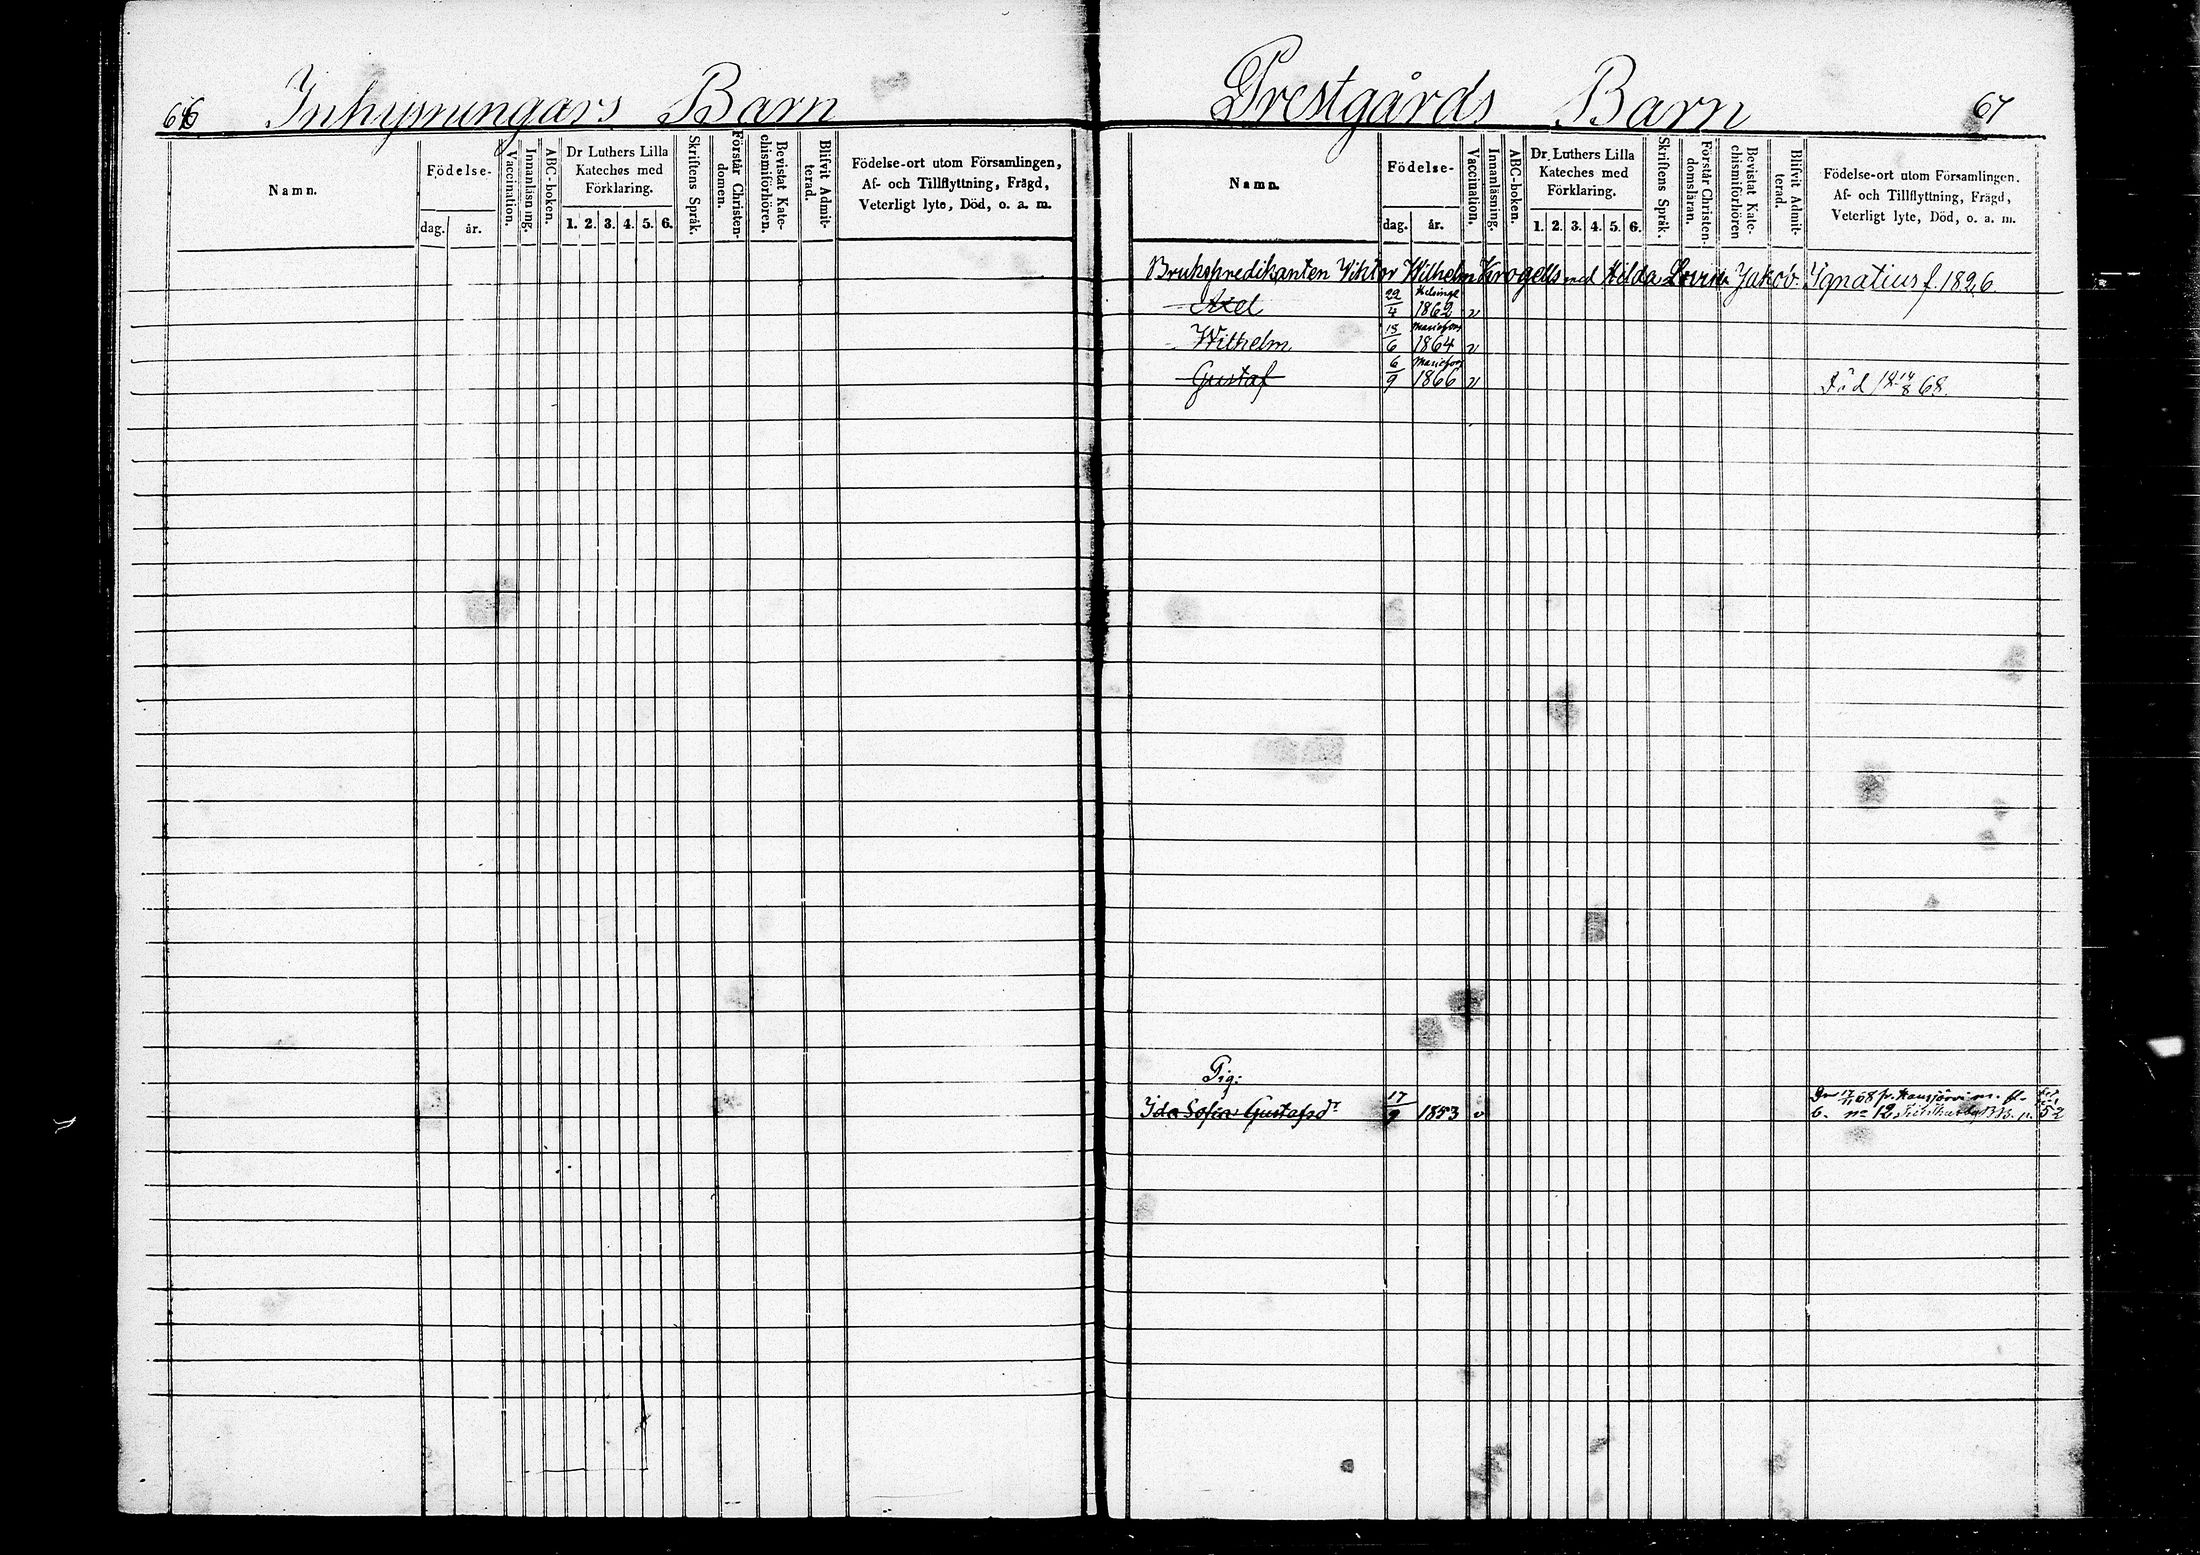 66 Inhysningars Barn
Namn.
Födelse-
dag. år.
Vaccination.
Innanläsning.
ABC-boken.
Dr Luthers Lilla
Kateches med
Förklaring.
1. 2. 3. 4. 5. 6.
Skriftens Språk.
Förstår Christen-
domen.
Bevistat Kate-
chismiförhören.
Blifvit Admit-
terad.
Födelse-ort utom Församlingen,
Af- och Tillflyttning, Frägd,
Veterligt lyte, Död, o. a. m.
Prestgårds Barn 67
Namn.
Födelse-
dag. år.
Vaccination.
Innanläsning.
ABC-boken.
Dr Luthers Lilla
Kateches med
Förklaring.
1. 2. 3. 4. 5. 6.
Skriftens Språk.
Förstår Christen-
domsläran.
Bevistat Kate-
chismiförhören
Blifvit Admit-
terad.
Födelse-ort utom Församlingen.
Af- och Tillflyttning, Frägd,
Veterligt lyte, Död, o. a. m.
Brukspredikanten Viktor Wilhelm Krogells med Hilda Lovisa Jakob. Ignatius f. 1826.
Axel 22/4 Helsingf 1862 v
Wilhelm 15/6 Mariefors 1864 v
Gustaf 6/9 Mariefors 1866 v Död 18 14/8 68.
Pig:
Ida Sofia Gustafsdr 17/9 1853 v